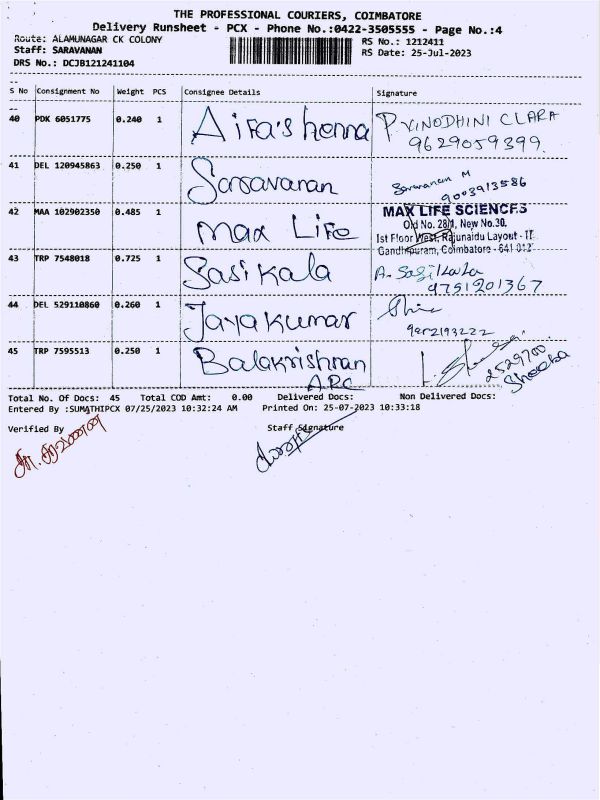 THE PROFESSIONAL COURIERS, COIMBATORE
Delivery Runsheet - PCX - Phone No.:0422-3505555 - Page No.:4
Route: ALAMUNAGAR CK COLONY
RS No.: 1212411
Staff: SARAVANAN
RS Date: 25-Jul-2023
DRS No.: DCJB121241104
S No Consignment No Weight PCS Consignee Details Signature
40 PDK 6051775 0.240 1 Aifa's henna P. VINODHINI CLARA
9629059399.
41 DEL 120945863 0.250 1 Sarsavanan Saravanan M
9003913586
42 MAA 102902350 0.485 1 Max Life MAX LIFE SCIENCES
Old No. 28/1, New No.30.
1st Floor West, Rajunaidu Layout - II
Gandhipuram, Coimbatore - 641 012.
43 TRP 7548018 0.725 1 Sasikala A. Sasikala
9751201367
44 DEL 529110860 0.260 1 Jayakumar
45 TRP 7595513 0.250 1 Balakrishnan 2529700
A.R.C Sheeba
Total No. Of Docs: 45 Total COD Amt: 0.00 Delivered Docs: Non Delivered Docs:
Entered By :SUMATHIPCX 07/25/2023 10:32:24 AM Printed On: 25-07-2023 10:33:18
Verified By Staff Signature